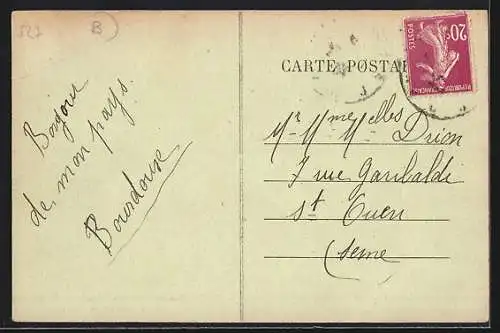 527 B
Bonjour
de mon pays.
Bourdouse
CARTE POSTAL
20c
POSTES
REPUBLIQUE FRANÇAISE
Mr Mme Melles Drion
7 rue Garibaldi
St Ouen
(Seine